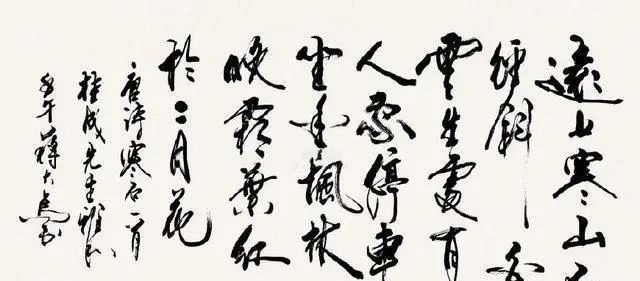 遠上寒山石
徑斜白
雲生處有
人家停車
坐愛楓林
晚霜葉紅
於二月花
唐詩寒石一首
桂成先生雅
壬午蔣大為書